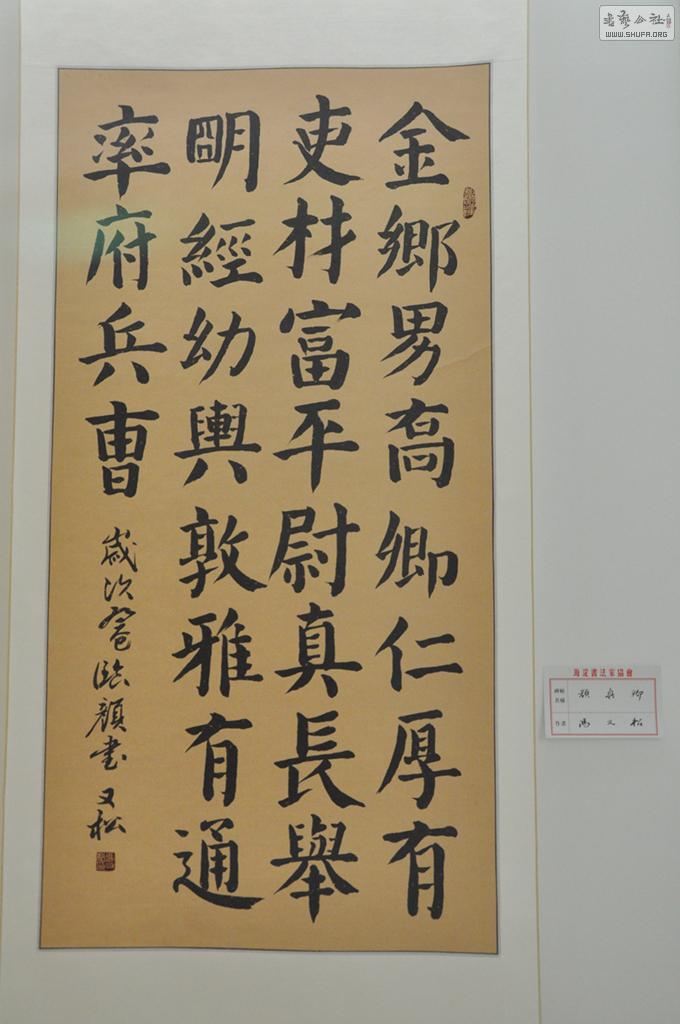 金鄉男喬卿仁厚有
吏材富平尉真長舉
明經幼輿敦雅有通
率府兵曹
歲次
臨顏書又松
海淀書法家協會
碑帖名稱
顏真卿
作者
馮又松
書藝公社
WWW.SHUFA.ORG